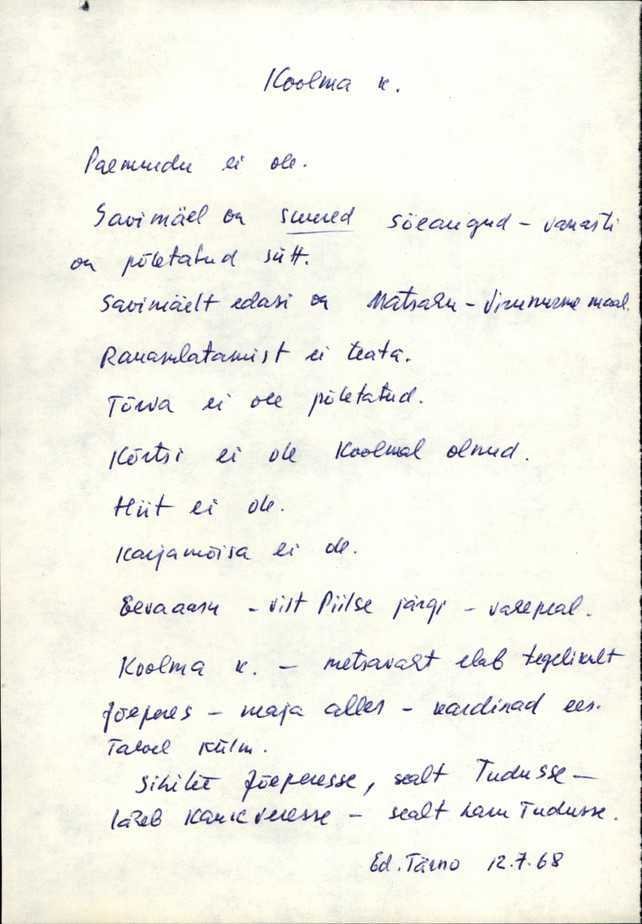 Koolma k.
Paemurdu ei ole.
Savimäel on suured söeaugud - vanasti
on põletatud sütt.
Savimäelt edasi on Matsaku - Virunurme maal.
Rauasulatamist ei teata.
Tõrva ei ole põletatud.
Kõrtsi ei ole Koolmal olnud.
Hiit ei ole.
Karjamõisa ei ole.
Eevaaasu - vist Piilse järgi - vasepeal.
Koolma k. - metsavaht elab tegelikult
Jõeperes - maja alles - kardinad ees.
Talvel külm.
Sihilt Jõeperesse, sealt Tudusse -
läheb Kaukveresse - sealt haru Tudusse.
Ed. Tärno 12.7.68